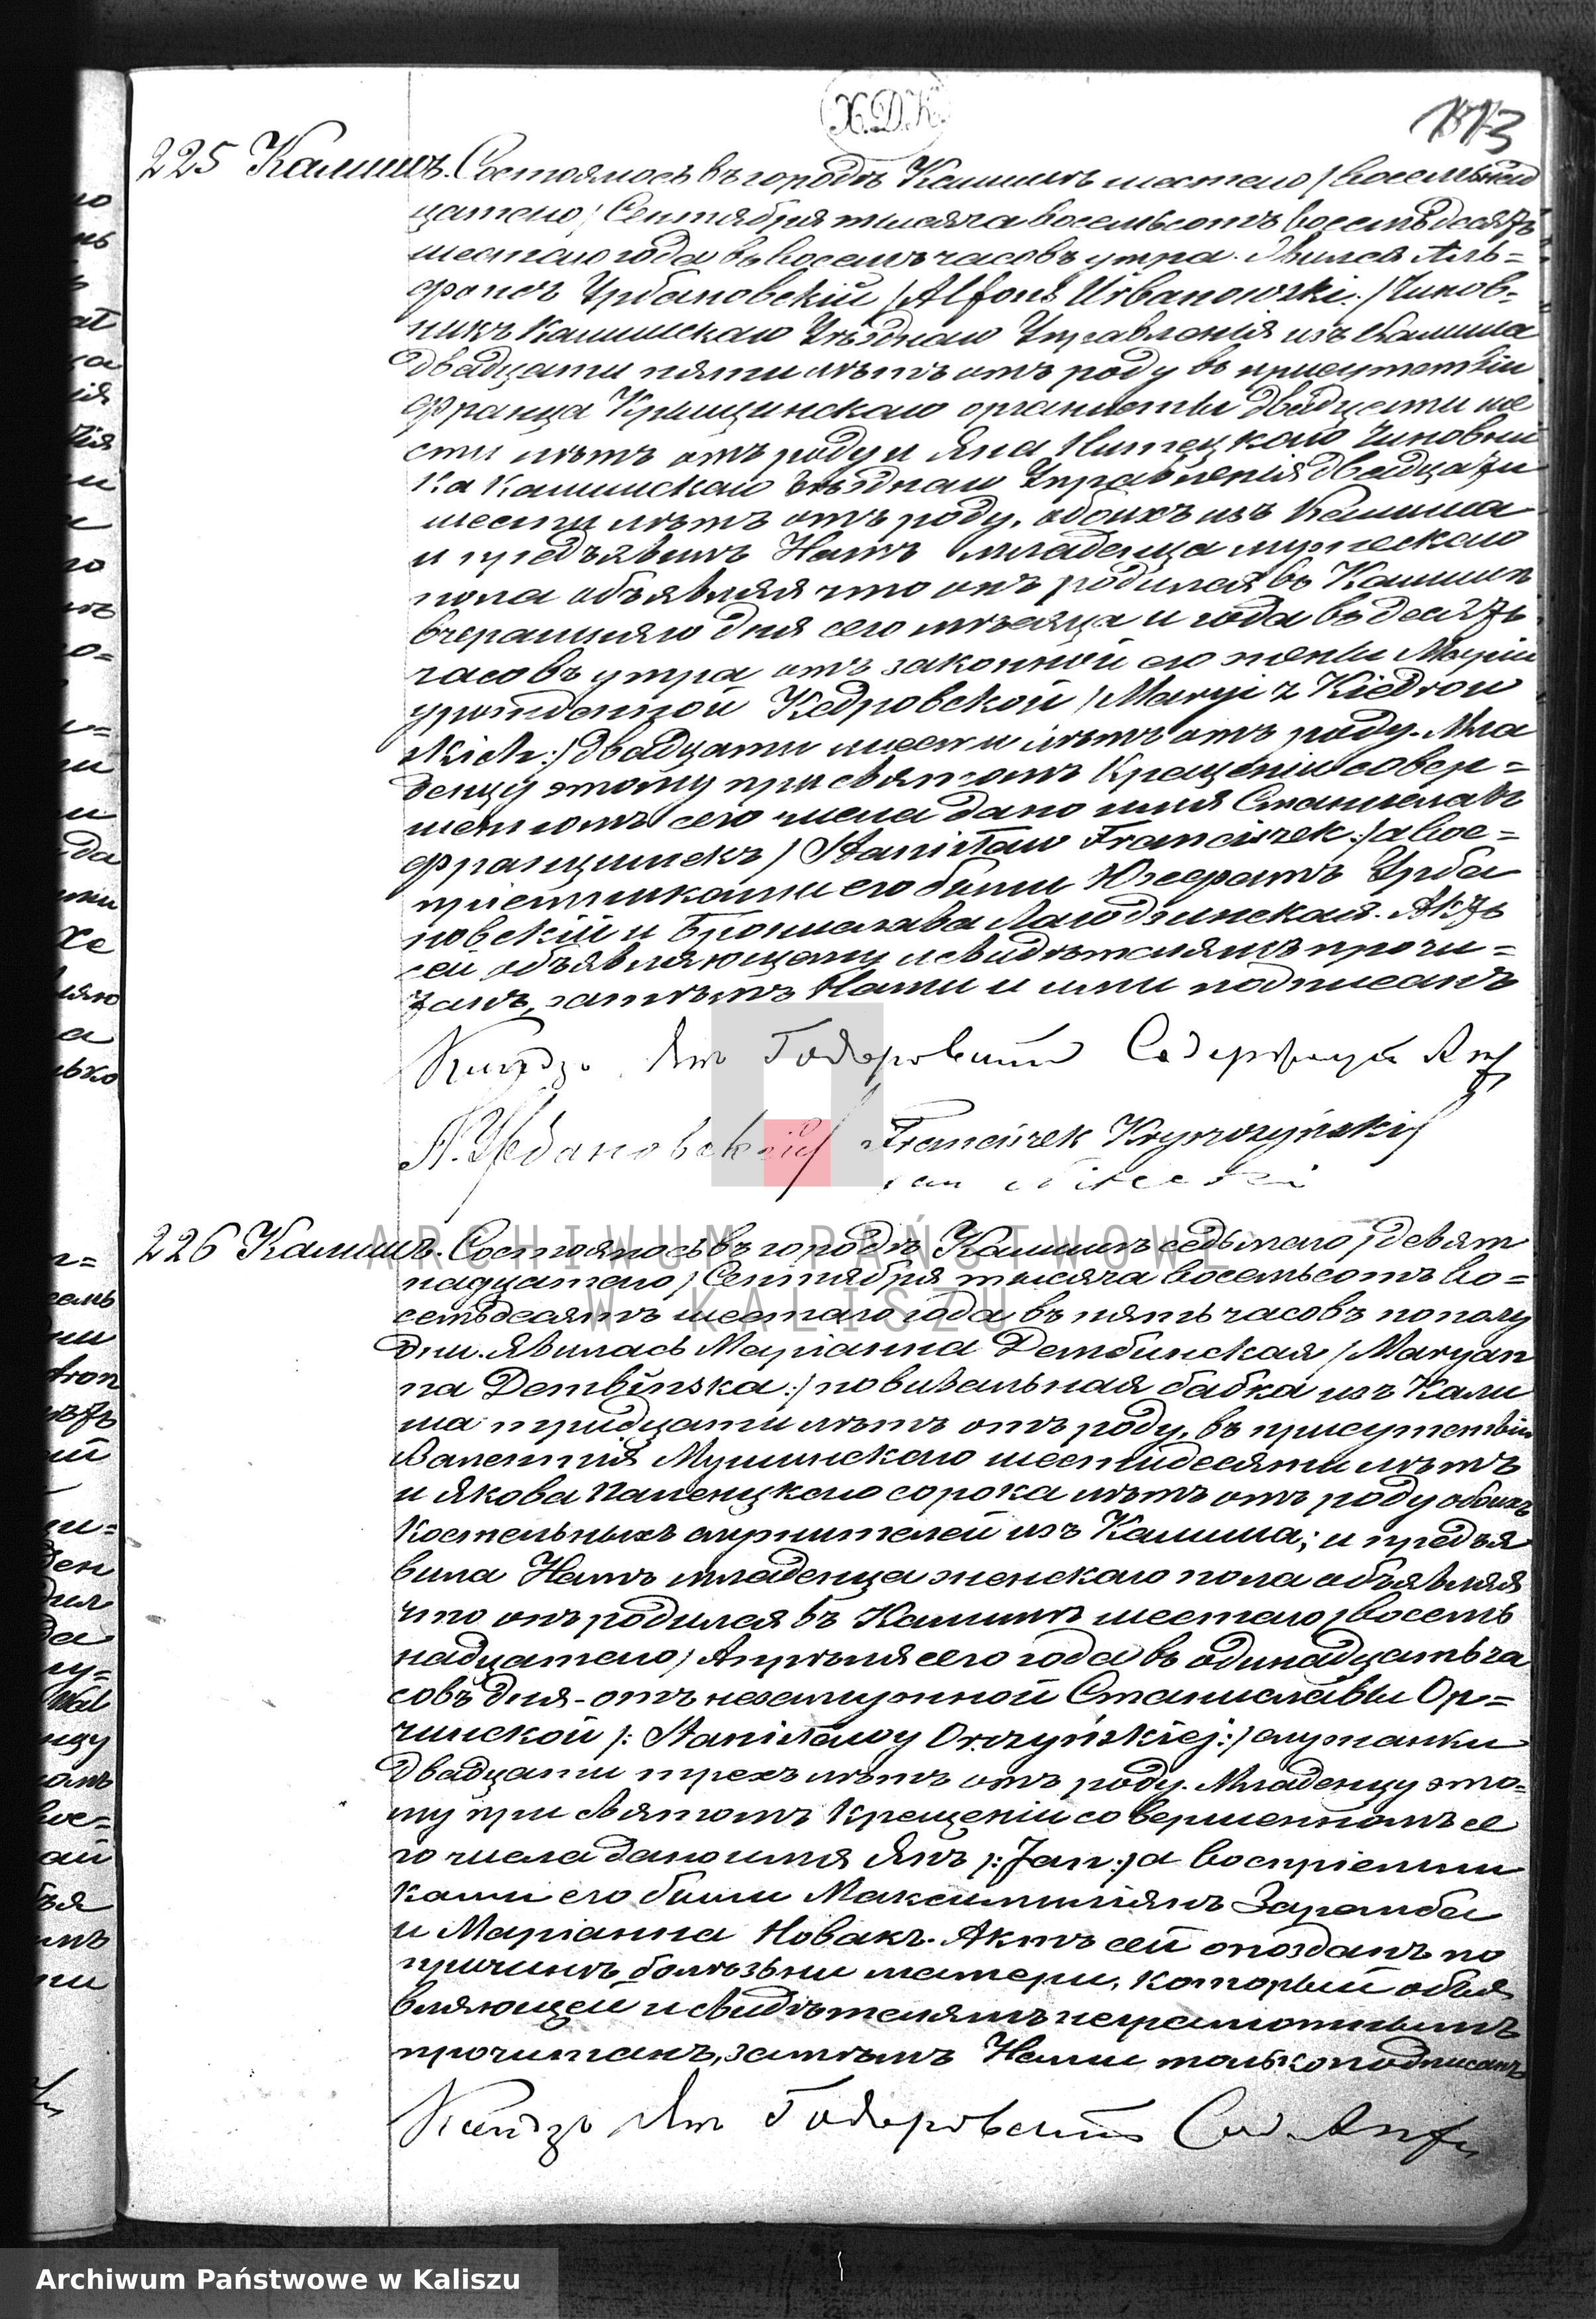 Х.Д.К.
113
225 Калишъ. Состоялось въ городѣ Калишѣ шестаго / восемьнад
цатаго / Сентября тысяча восемьсотъ восемьдесятъ
шестаго года въ восемь часовъ утра. Явился Аль=
фонсъ Урбановскій / Alfons Urbanowski: / Чинов=
никъ Калишскаго Уѣзднаго Управленія изъ Калиша
двадцати пяти лѣтъ отъ роду въ присутствіи
Франца Крыщинскаго органисты двадцати ше
сти лѣтъ отъ роду и Яна Нитецкаго Чиновни
ка Калишскаго Уѣзднаго Управленія двадцати
шести лѣтъ отъ роду, обоихъ изъ Калиша
и предъявилъ Намъ младенца мужескаго
пола объявляя что онъ родился въ Калишѣ
вчерашняго дня сего мѣсяца и года въ десять
часовъ утра отъ законной его жены Маріи
урожденной Кедровской / Maryi z Kiedrow
skich: / двадцати шести лѣтъ отъ роду. Мла
денцу этому при святомъ Крещеніи совер=
шенномъ сего числа дано имя Станиславъ
Францишекъ / Stanisław Franciszek: / а вос=
пріемниками его были Юзефатъ Урба
новскій и Бронислава Лагодзинская. Актъ
сей объявляющему и свидѣтелямъ прочи=
танъ, затѣмъ Нами и ими подписанъ
Ксендзъ Янъ Содержащій Акты
А. Урбановскій Franciszek Kryszczyński
Jan Nitecki
226 Калишъ. Состоялось въ городѣ Калишѣ седьмаго / девят
надцатаго / Сентября тысяча восемьсотъ во=
семьдесятъ шестаго года въ пять часовъ пополу
дни. Явилась Маріанна Дембинская / Maryan
na Dembińska: / повивальная бабка изъ Кали
ша тридцати лѣтъ отъ роду, въ присутствіи
Валентія Мушинскаго шестидесяти лѣтъ
и Якова Каменицкаго сорока лѣтъ отъ роду обоихъ
костельныхъ служителей изъ Калиша; и предъя
вила Намъ младенца женскаго пола объявляя
что онъ родился въ Калишѣ шестаго / восемь
надцатаго / Апрѣля сего года въ одинадцать ча
совъ дня - отъ незамужной Станиславы Ор=
чинской /: Stanisławy Orczyńskiej: / служанки
двадцати трехъ лѣтъ отъ роду. Младенцу это=
му при святомъ Крещеніи совершенномъ се
го числа дано имя Янъ /: Jan: / а воспріемни
ками его были Максимиліянъ Заремба
и Маріанна Новакъ. Актъ сей опозданъ по
причинѣ болѣзьни матери, который объя
вляющей и свидѣтелямъ неграмотнымъ
прочитанъ, затѣмъ Нами только подписанъ
Ксендзъ Янъ Сод. Акты
ARCHIWUM PAŃSTWOWE
W KALISZU
Archiwum Państwowe w Kaliszu